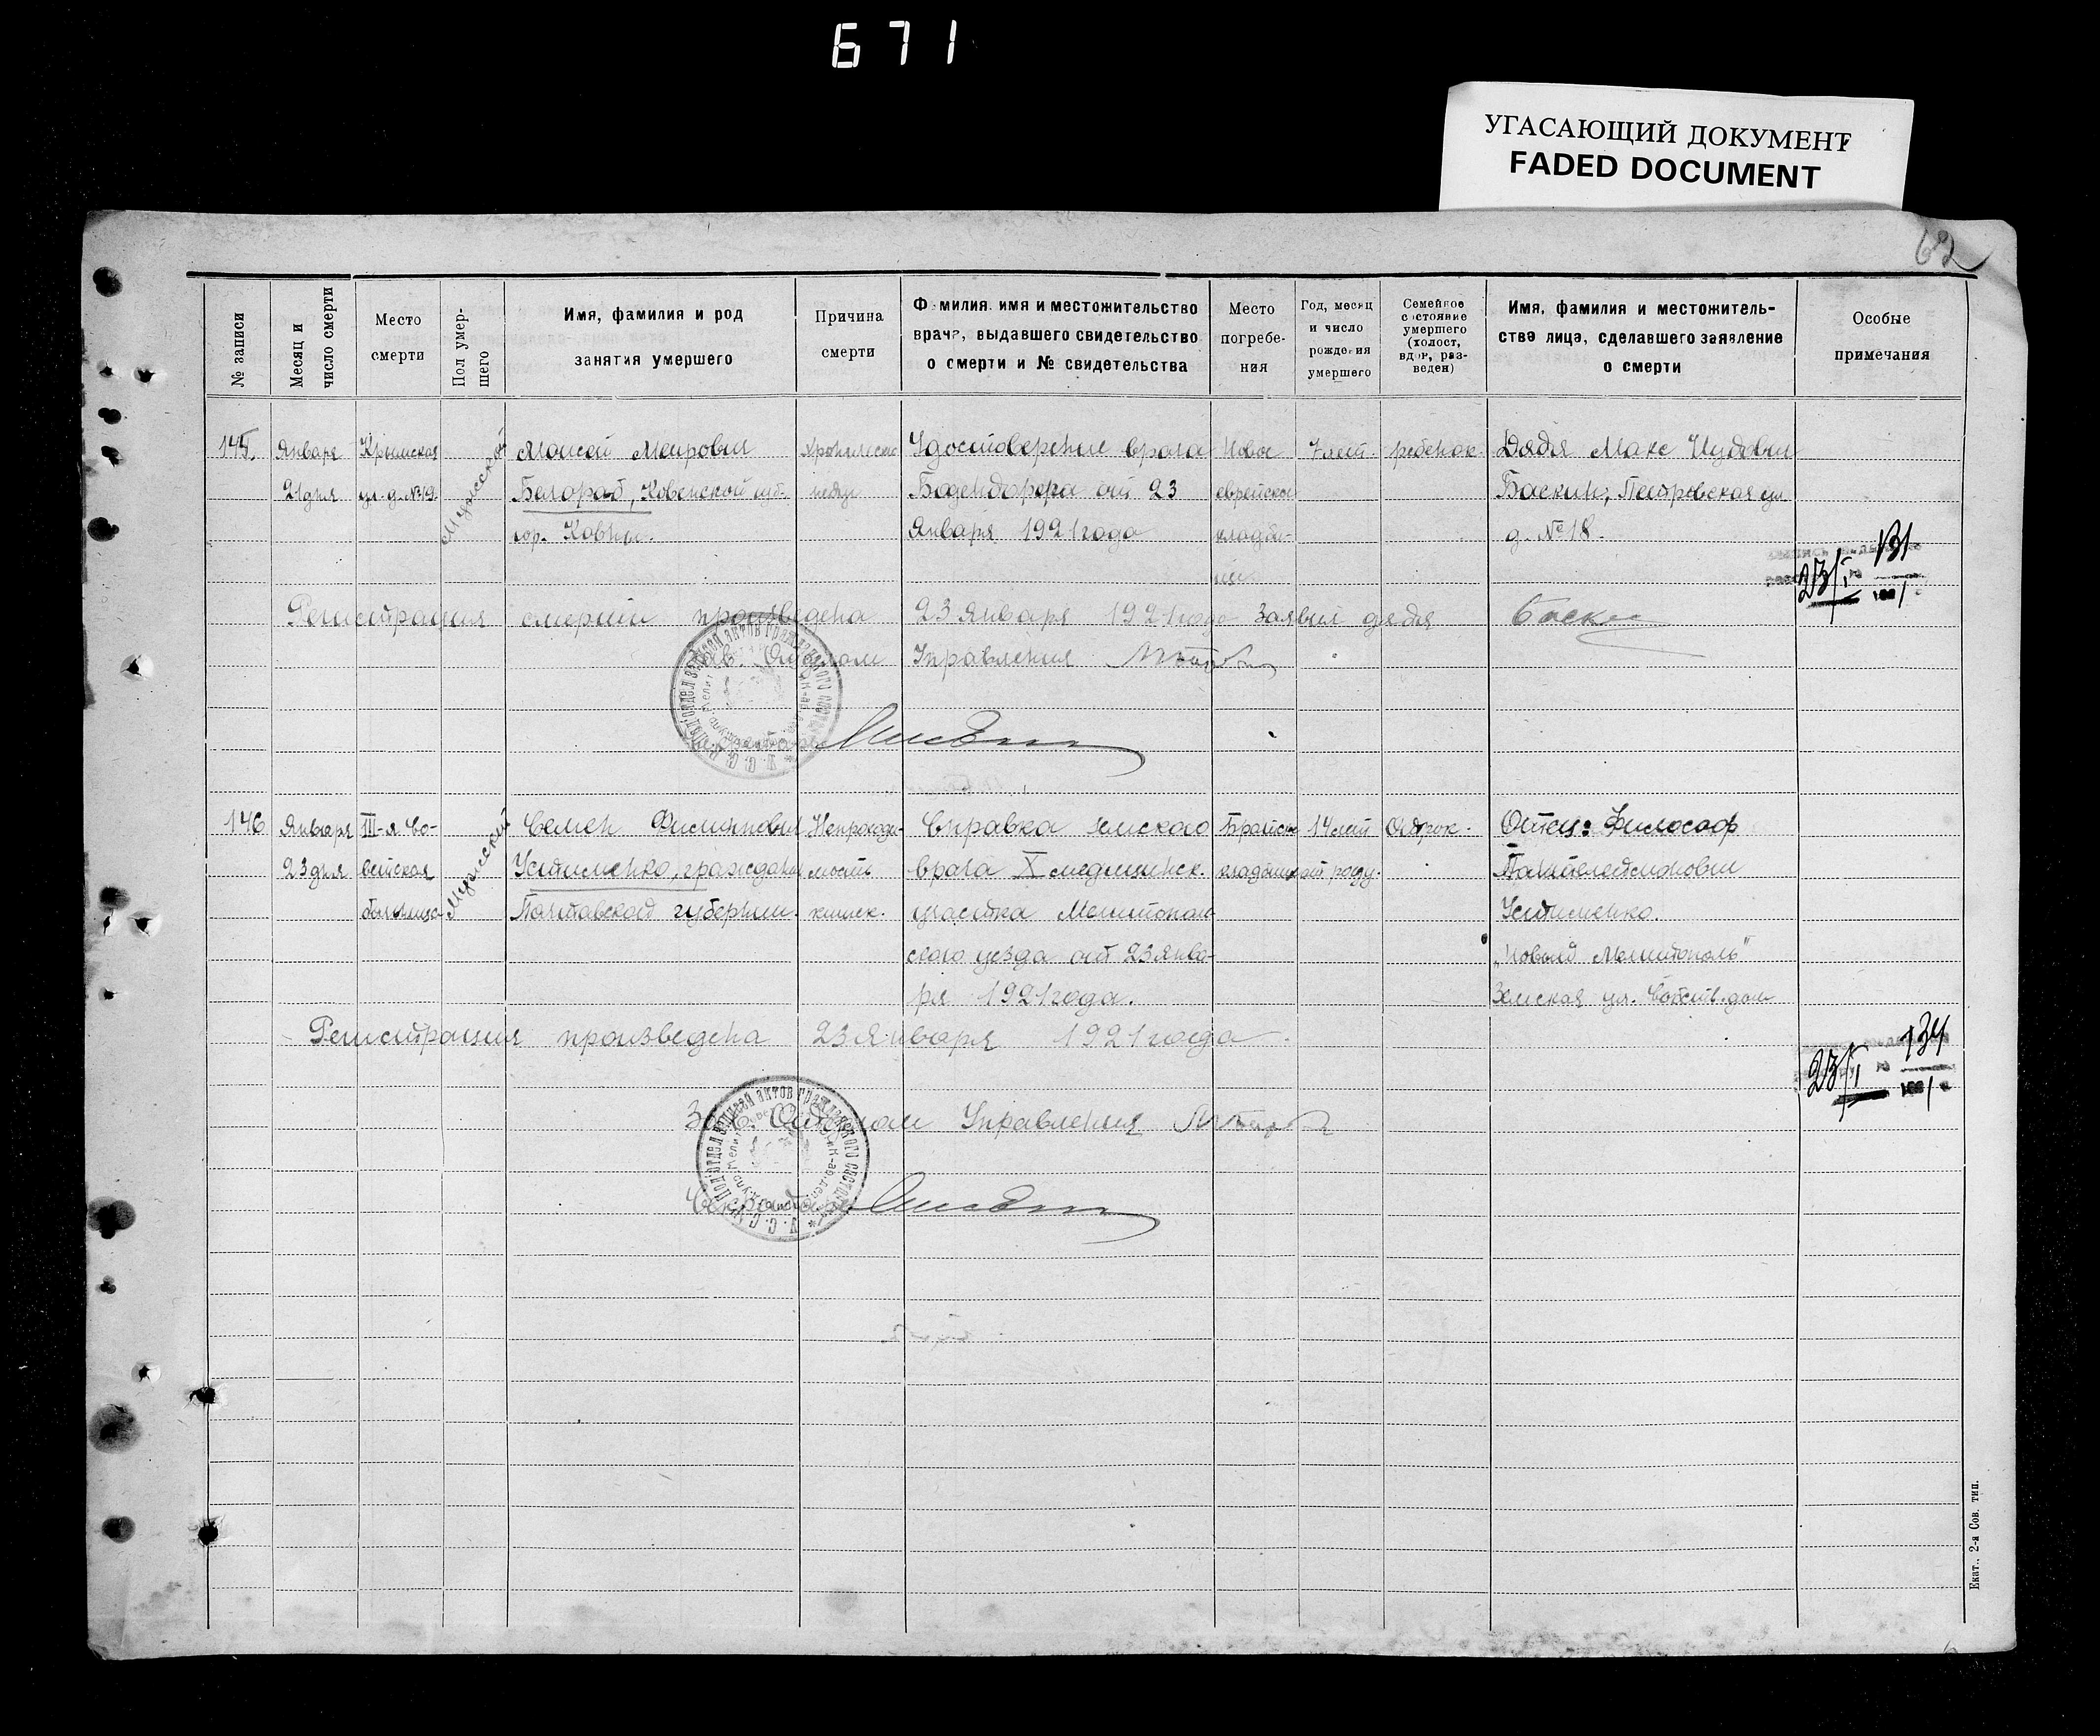 671
УГАСАЮЩИЙ ДОКУМЕНТ
FADED DOCUMENT
62
№ записи
Месяц и число смерти
Место смерти
Пол умер-шего
Имя, фамилия и род
занятия умершего
Причина
смерти
Фамилия, имя и местожительство
врача, выдавшего свидетельство
о смерти и № свидетельства
Место
погребе-
ния
Год, месяц
и число
рождения
умершего
Семейное
состояние
умершего
(холост,
вдов, раз-
веден)
Имя, фамилия и местожитель-
ства лица, сделавшего заявление
о смерти
Особые
примечания
145.
Января
21 дня
Крымская
ул. д. №19.
Мужской
Моисей Меирович
Ковенской губ.
гор. Ковны.
Удостоверение врача
Бодендорфа от 23
Января 1921 года
Новое
еврейское
кладби-
ще
7 лет.
ребенок.
Дядя Макс Иудович
Баскин; Петровская ул
д. №18.
131
23/I
Регистрация смерти произведена 23 Января 1921 года Заявил дядя
Зав. Отделом Управления
146
Января
23 дня
III-я Со-
ветская
больница
Мужской
Семен
Устименко, граждан
Полтавской губернии.
Непроходи-
мость
кишек.
Справка земского
врача X медицинск.
участка Мелитополь-
ского уезда от 23 Янва-
ря 1921 года.
Братск
кладбище
14 лет
от роду.
Отрок.
Отец: Философ
Пантелеймонович
Устименко.
„Новый Мелитополь"
Земская ул. Собств. дом
134
23/I
Регистрация произведена 23 Января 1921 года.
Зав. Отделом Управления
Секретарь
Екат., 2-я Сов. тип.